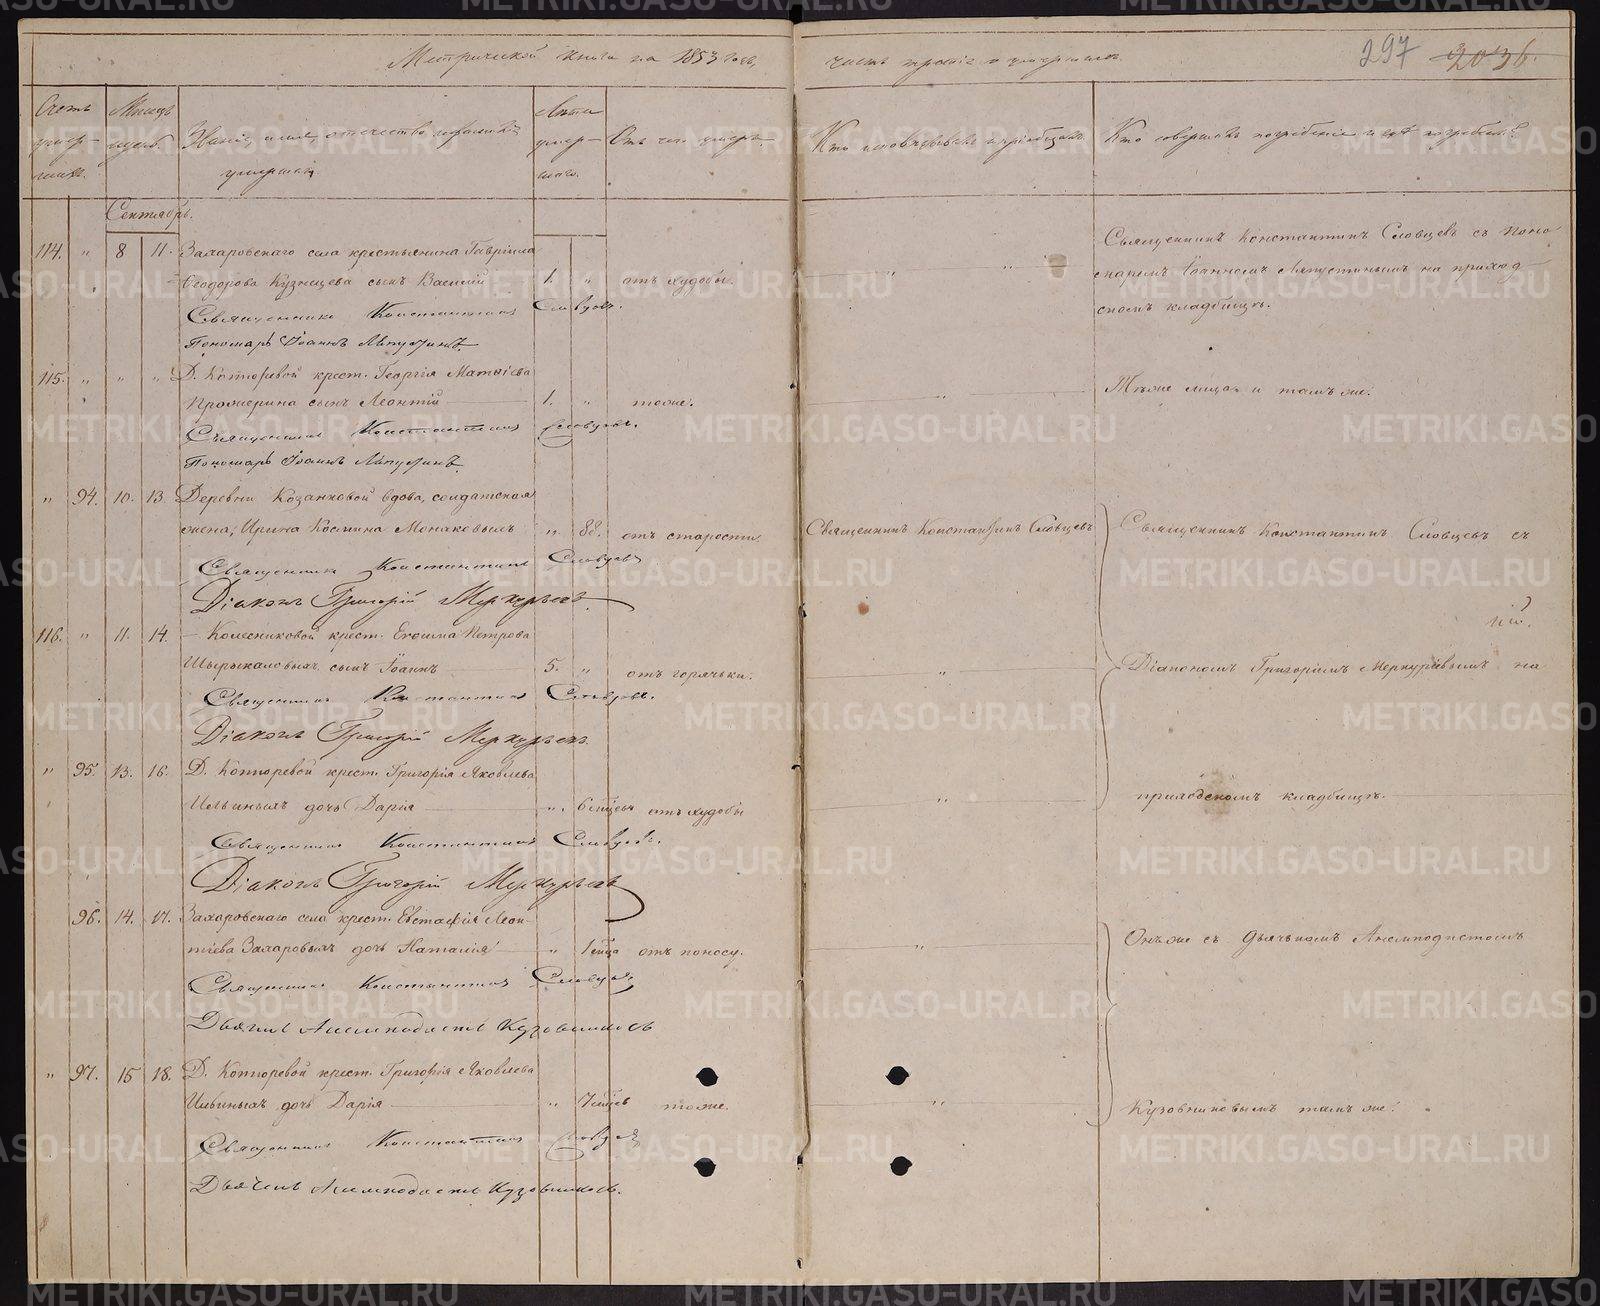 Метрической книги на 1853 годъ, часть третія о умершихъ.
297
2036.
Счетъ умер-шихъ.
Мѣсяцъ и день.
Званіе, имя, отчество и фамилія умершихъ
Лѣта умер-шаго.
Отъ чего умеръ.
Кто исповѣдывалъ и пріобщалъ.
Кто совершалъ погребеніе и гдѣ погребены?
Сентябрь.
114. " 8 11. Захаровскаго села крестьянина Гавріила
Ѳеодорова Кузнецова сынъ Василій 1. " отъ худобы. " "
Священникъ Константинъ Словцовъ съ Поно-
маремъ Іоанномъ Ляпустинымъ на приход-
скомъ кладбищѣ.
Священникъ Константинъ Словцовъ.
Пономарь Іоаннъ Ляпустинъ.
115. " " " Д. Коттюревой крест. Георгія Матвіева
сынъ Леонтій 1. " тоже. "
Тѣже лица и тамъ же.
Священникъ Константинъ Словцовъ.
Пономарь Іоаннъ Ляпустинъ.
" 94. 10. 13. Деревни Казанковой вдова, солдатская
жена, Ирина Космина Монаковыхъ " 88. отъ старости. Священникъ Константинъ Словцевъ
Священникъ Константинъ Словцевъ съ
Священникъ Константинъ Словцовъ
Діаконъ Григорій Меркурьевъ.
116. " 11. 14. Колесниковой крест. Екима Петрова
Шырыкаловыхъ сынъ Іоаннъ 5. " отъ горячки. "
Діакономъ Григоріемъ Меркурьевымъ на
Священникъ Константинъ Словцовъ.
Діаконъ Григорій Меркурьевъ.
" 95. 13. 16. Д. Коттюревой крест. Григорія Яковлева
Ильиныхъ дочь Дарія " 6 мѣсец отъ худобы "
приходскомъ кладбищѣ.
Священникъ Константинъ Словцовъ.
Діаконъ Григорій Меркурьевъ
96. 14. 17. Захаровскаго села крест. Евстафія Леон-
тіева Захаровыхъ дочь Наталія " 1 мѣца отъ поносу. "
Онъ же съ Дьячькомъ Анемподистомъ
Священникъ Константинъ Словцовъ
Дьячекъ Анемподистъ Кузовниковъ
" 97. 15 18. Д. Коттюревой крест. Григорія Яковлева
Ильиныхъ дочь Дарія " 7 мѣцев тоже. "
Кузовниковымъ тамъ же.
Священникъ Константинъ Словцовъ
Дьячекъ Анемподистъ Кузовниковъ.
METRIKI.GASO-URAL.RU